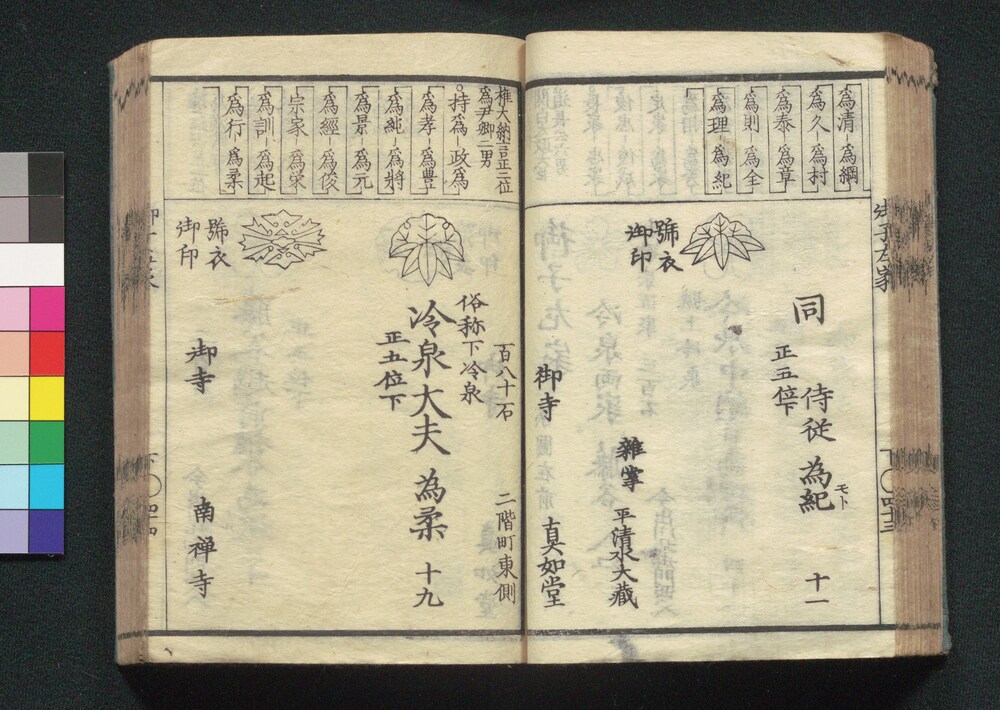 為清 為綱
為久 為村
為泰 為章
為則 為全
為理 為紀
同 侍従 為紀 モト 十一
正五位下
號衣
御印
雑掌 平清水大蔵
御寺 真如堂
權大納言正二位
為尹卿二男
持為 政為
為孝 為豊
為純 為將
為景 為元
為經 為俊
宗家 為栄
為訓 為起
為行 為柔
百八十石 二階町東側
俗称下冷泉
冷泉大夫 為柔 十九
正五位下
號衣
御印
御寺 南禅寺